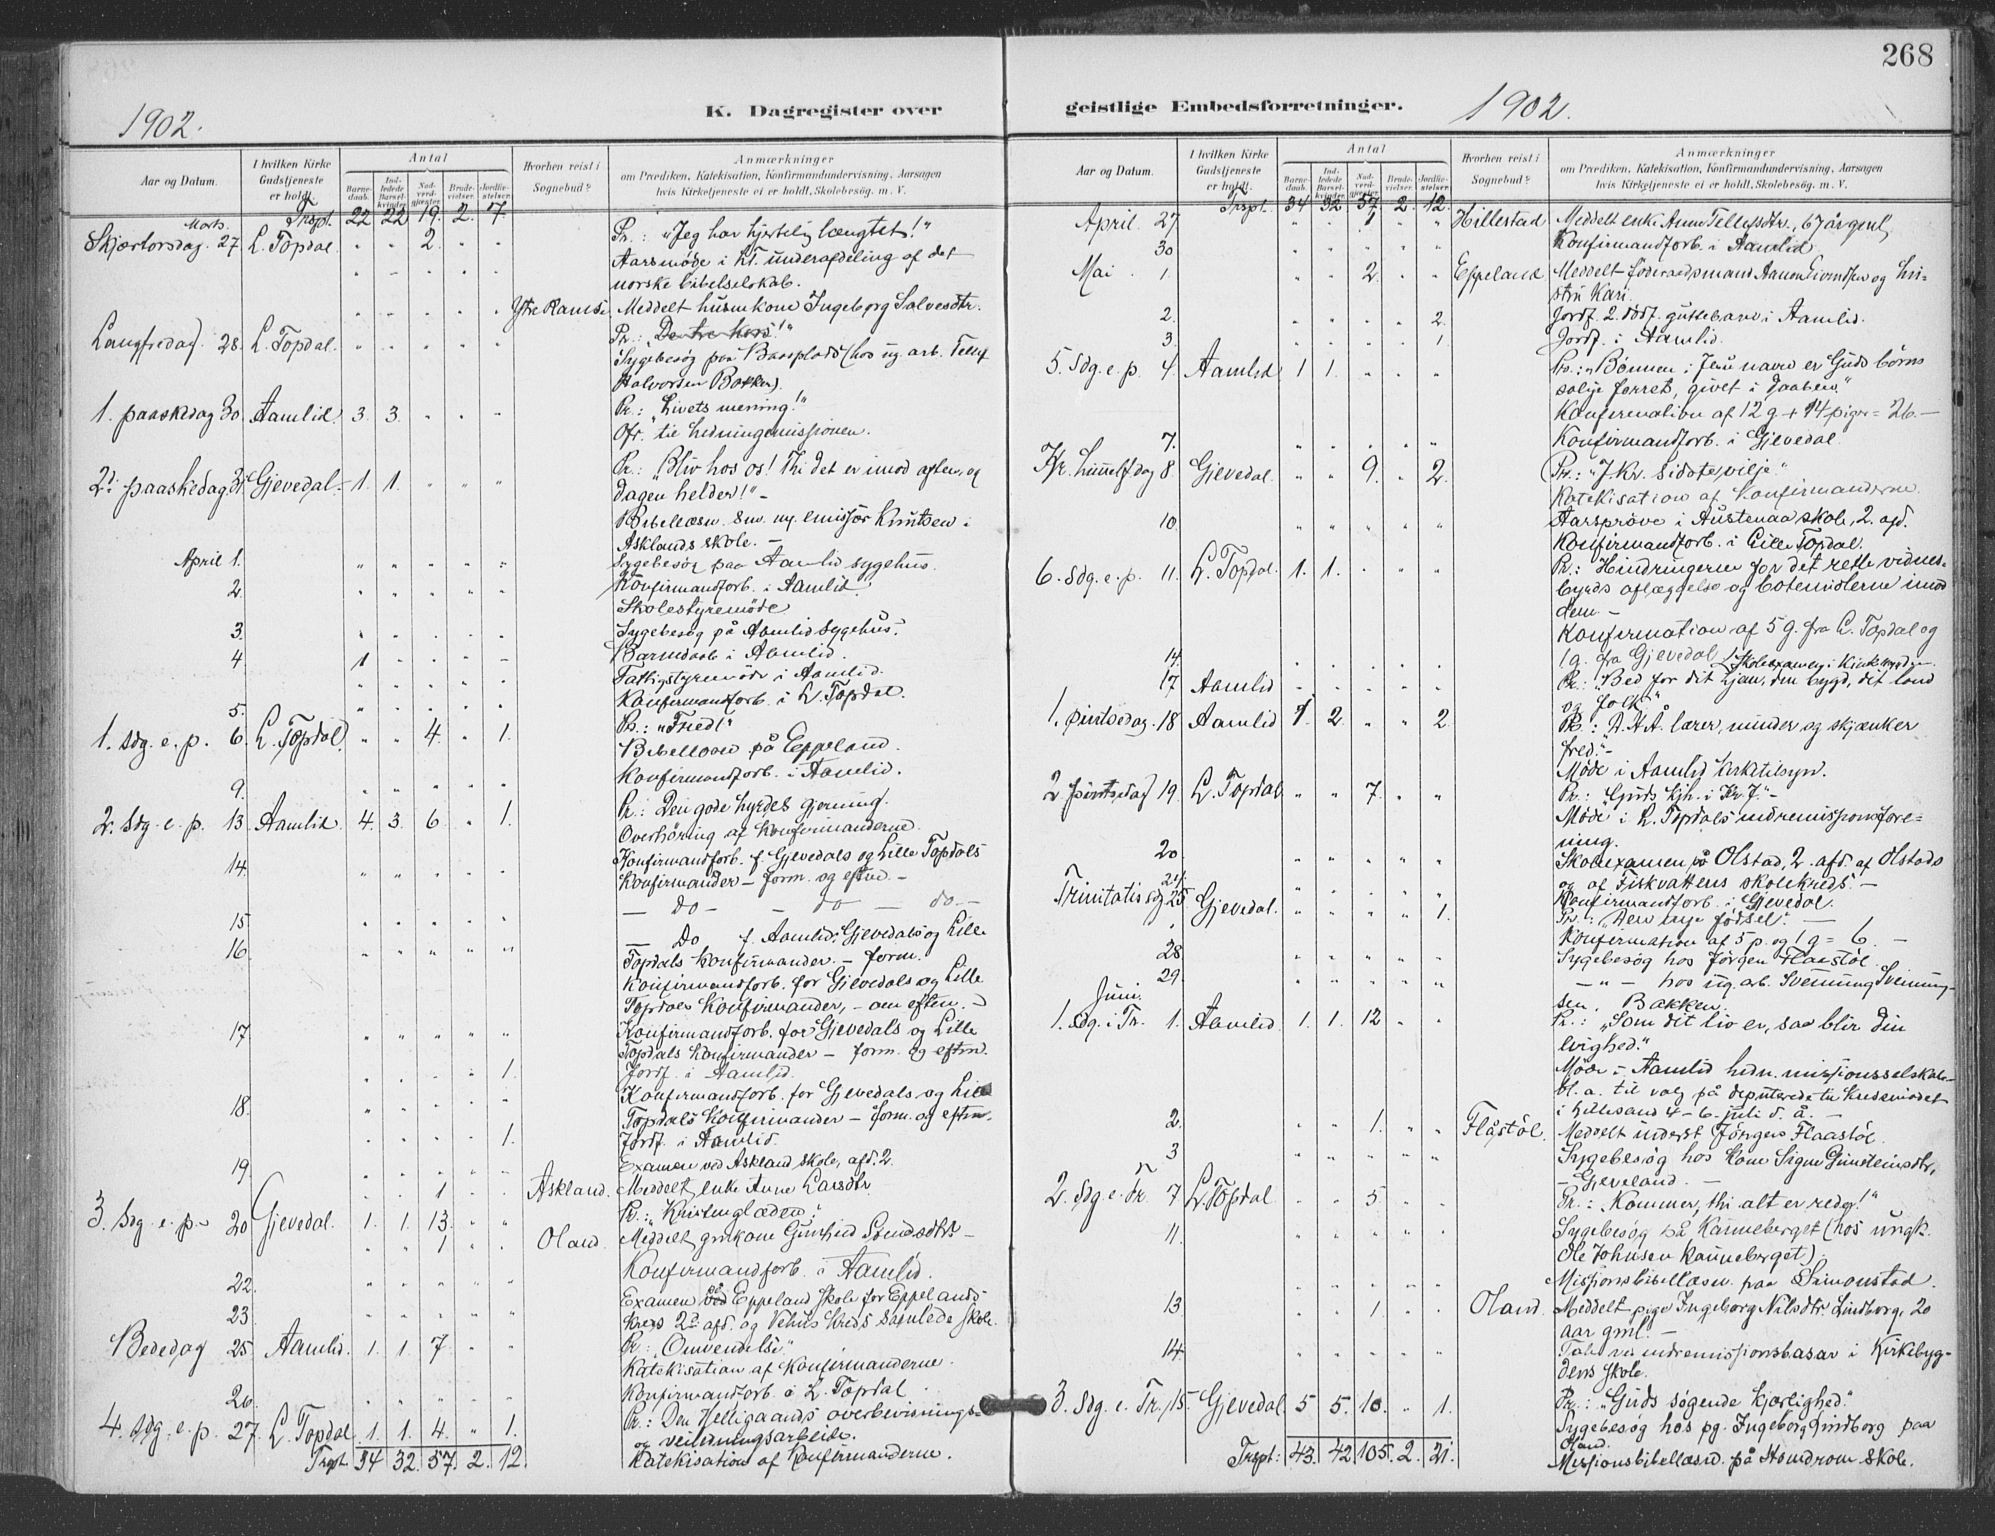 268
1902.
K. Dagregister over
Aar og Datum.
I hvilken Kirke Gudstjeneste er holdt.
Antal
Barne-daab.
Ind-ledede Barsel-kvinder.
Nad-verd-gjæster.
Brude-vielser.
Jordfæ-stelser.
Hvorhen reist i Sognebud?
Anmærkninger
om Prædiken, Katekisation, Konfirmandundervisning, Aarsagen
hvis Kirketjeneste ei er holdt, Skolebesøg. m. V.
Trspt. 22 22 19. 2. 7.
Marts.
Skjærtorsdag. 27. L. Topdal. " " 2. " " Pr.: "Jeg har hjertelig længtet!"
Aarsmøde i Kr. underafdeling af det
norske bibelselskab.
Ytre Ramse Meddelt husm. kone Ingeborg Salvesdtr.
Langfredag. 28. L. Topdal. " " " " " Pr.: "De tre kors!"
Sygebesøg paa (hos ug. arb. Tellef
Halvorsen Bakken).
1. paaskedag 30. Aamlid. 3. 3. " " " Pr.: "Livets mening!"
Ofr. til hedningemissionen.
2. paaskedag 31. Gjevedal. 1. 1. " " " Pr.: "Bliv hos os! Thi det er imod aften, og
dagen helder!" –
Bibellæsn. emissær Knutsen i
Asklands skole. –
April 1. " " " " " Sygebesøg paa Aamlid sygehus.
2. " " " " " Konfirmandforb. i Aamlid.
Skolestyremøde
3. " " " " " Sygebesøg på Aamlid sygehus.
4 1 " " " " Barnedaab i Aamlid.
" " " " " Fattigstyremøde i Aamlid.
5. " " " " " Konfirmandforb. i L. Topdal.
1. Sdg. e. p. 6. L. Topdal. " " 4. " 1. Pr.: "Fred!"
Bibellæsn på Eppeland.
9. " " " " " Konfirmandforb. i Aamlid.
2. Sdg. e. p. 13 Aamlid. 4. 3. 6. " 1. Pr.: Den gode hyrdes gjerning.
Overhøring af Konfirmanderne.
14. " " " " " Konfirmandforb. f. Gjevedals og Lille Topdals
Konfirmander – form. og eftm. –
15 " " " " " – do – – do – do –
16. " " " " " – Do f. Aamlids, Gjevedals og Lille
Topdals Konfirmander. – form.
Konfirmandforb. for Gjevedals og Lille
Topdals Konfirmander, – om eftm. –
17 " " " " " Konfirmandforb. for Gjevedals og Lille
Topdals Konfirmander – form. og eftm.
" " " " 1. Jordf. i Aamlid.
18. " " " " " Konfirmandforb. for Gjevedals og Lille
Topdals Konfirmander – form. og eftm.
" " " " 1. Jordf. i Aamlid.
19 " " " " " Examen ved Askland skole, afd. 2.
" " 1 " " Askland. Meddelt enke Anne Larsdtr
3. Sdg. e. p. 20 Gjevedal. 1. 1. 13. " " Pr.: "Kristenglæden".
" " 1 " " Oland. Meddelt gmkone Gunhild Svendsdtr –
22. " " " " " Konfirmandforb. i Aamlid.
23 " " " " " Examen på Eppeland skole for Eppelands
kreds 2. afd. og Vehus kreds samlede skole.
Bededag 25. Aamlid. 1. 1. 7 " " Pr.: "Omvendelse".
Katekisation af Konfirmanderne.
26. " " " " " Konfirmandforb. i L. Topdal.
4. Sdg. e. p. 27. L. Topdal 1. 1. 4. " 1. Pr.: Den Helligaands overbevisnings-
og veiledningsarbeide.
Trspt. 34 32. 57. 2. 12. Katekisation af Konfirmanderne.
geistlige Embedsforretninger.
1902.
Aar og Datum.
I hvilken Kirke Gudstjeneste er holdt.
Antal
Barne-daab.
Ind-ledede Barsel-kvinder.
Nad-verd-gjæster.
Brude-vielser.
Jordfæ-stelser.
Hvorhen reist i Sognebud?
Anmærkninger
om Prædiken, Katekisation, Konfirmandundervisning, Aarsagen
hvis Kirketjeneste ei er holdt, Skolebesøg m. V.
Trspt. 34 32 57. 2. 12.
April 27 " " 1 " " Hillestad Meddelt enke Anne Tellefsdtr., 67 år gml.
30 " " " " " Konfirmandforb. i Aamlid.
Mai 1 " " 2. " " Eppeland Meddelt føderaadsmand Aanon Eivindsen og hu-
stru Kari.
2. " " " " 2. Jordf. 2 guttebarn i Aamlid.
3. " " " " 1. Jordf. i Aamlid.
5. Sdg. e. p. 4. Aamlid 1 1. " " " Pr.: "Bønnen i Jesu navn er Guds børns
salige forret, givet i daaben."
Konfirmation af 12 g + 14 piger = 26. –
7. " " " " " Konfirmandforb. i Gjevedal.
Kr. himmelfsdag 8 Gjevedal. " " 9. " 2. Pr.: "J. Kr. sidste vilje"
Katekisation af Konfirmanderne.
10. " " " " " Aarsprøve i Austenaa skole, 2. afd.
Konfirmandforb. i Lille Topdal.
6. Sdg. e. p. 11. L. Topdal. 1. 1. " " " Pr.: Hindringerne for det rette vidnes-
byrds aflæggelse og botemidlerne imod
dem –
Konfirmation af 5 g. fra L. Topdal og
1 g. fra Gjevedal
14. " " " " " Skoleexamen i Kirkebygden.
17 Aamlid " " " " " Pr.: "Bed for dit hjem, din bygd, dit land
og folk."
1. pintsedag 18 Aamlid 1 2. " " 2 Pr.: D. H. Å. lærer, minder og skjænker
fred." –
Møde i Aamlid kirketilsyn.
2 pintsedag 19. L. Topdal " " 7. " " Pr.: "Guds kjh. i Kr. J." –
Møde i L. Topdals indremissionsfore-
ning.
20. " " " " " Skoleexamen på Olstad, 2. afd. af Olstads
og af Fiskvattens skolekreds. –
24. " " " " " Konfirmandforb. i Gjevedal.
Trinitatis sdg 25 Gjevedal. " " " " 1. Pr.: "Den nye fødsel". –
Konfirmation af 5 p. og 1 g = 6. –
28 " " " " " Sygebesøg hos Jørgen Flaastøl.
29. " " " " " – " – hos ug. arb. Svenning Svenning-
sen, Bakken.
Juni.
1. Sdg. i Tr. 1. Aamlid. 1. 1. 12 " " Pr.: "Som dit liv er, saa blir din
evighed."
Møde i Aamlid hedn. missionsselskab
bl. a. til valg på deputerede til Kredsmødet
i Lillesand 4 – 6. juli d. å. –
2. " " 1. " " Flåstøl. Meddelt inderst Jörgen Flaastøl.
3 " " " " " Sygebesøg hos kone Signe Gunsteinsdtr,
– Gjeveland. –
2. Sdg. e. Tr. 7 L. Topdal. " " 5. " " Pr.: "Kommer, thi alt er rede!"
11. " " " " " Sygebesøg på Kanneberget (hos ungk.
Ole Johnsen Kanneberget).
" " " " " Missionsbibellæsn. paa Simonstad.
13 " " 1. " " Oland. Meddelt pige Ingeborg Nilsdtr. Lindborg, 20
aar gml. –
14. " " " " " Tale ved indremissionsbasar i Kirkebyg-
dens skole.
3. Sdg. e. Tr. 15. Gjevedal 5 5. 10. " 1. Pr.: "Guds søgende kjærlighed."
Sygebesøg hos pg. Ingeborg Lindborg paa
Oland.
Trspt: 43. 42 105. 2. 21. Missionsbibellæsn. på skole.